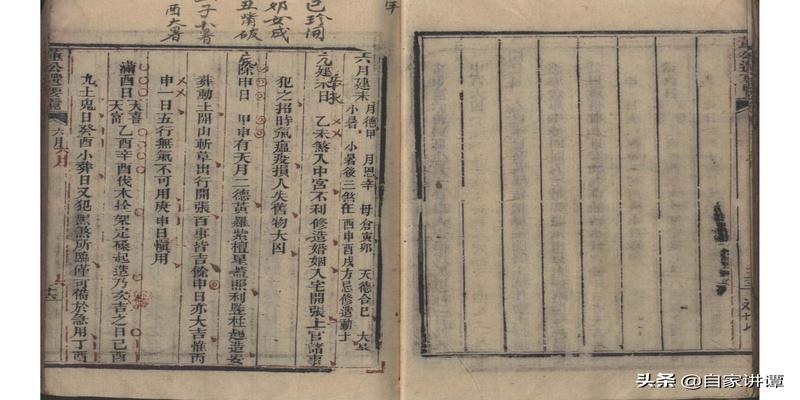 六月建未 月德甲 月恩辛 母倉寅卯 天德合巳
小暑 小暑後三煞在 申酉戌方忌修造動土
建未日 乙未煞入中宮不利修造婚姻入宅開張上官諸事
犯之招時氣瘟疫損人失舊物大凶
除申日 甲申有天月二德黃羅紫檀星蓋照利竪柱起造安
葬動土開山斬草出行開張百事皆吉餘申日亦大吉惟丙
申一日五行無氣不可用庚申日愼用
滿酉日 天喜天富 乙酉辛酉伐木拴架定磉起造乃次吉之日己酉
九土鬼日癸酉小葬日又犯黑煞所臨僅可備於急用丁酉
六月
子小暑
酉大暑
头条 @自家讲谭